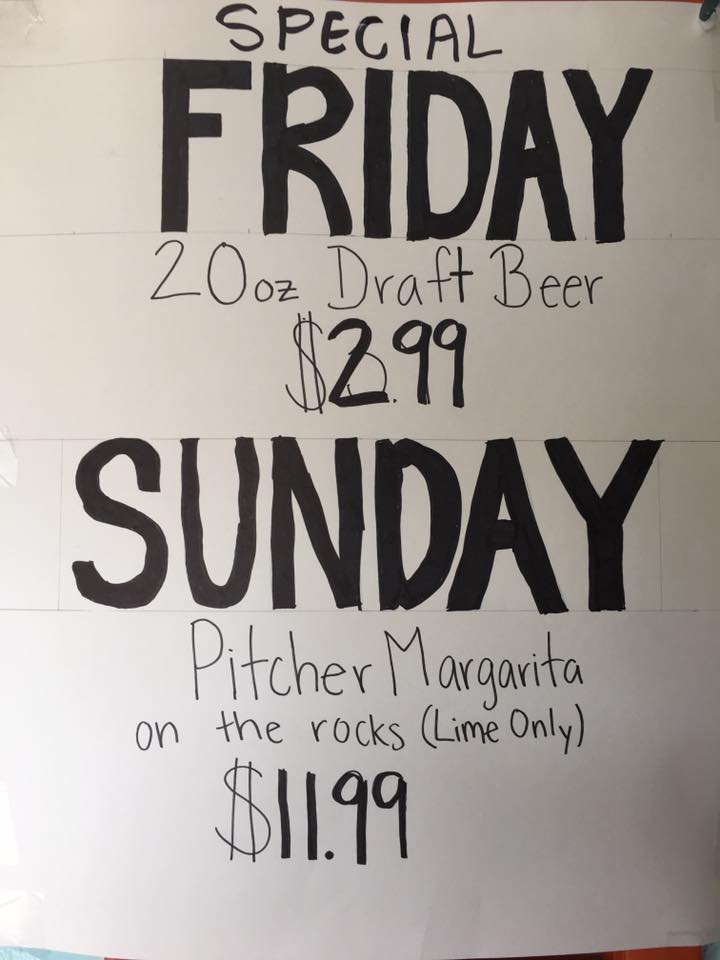 SPECIAL
FRIDAY
20oz Draft Beer
$2.99
SUNDAY
Pitcher Margarita
on the rocks (Lime Only)
$11.99